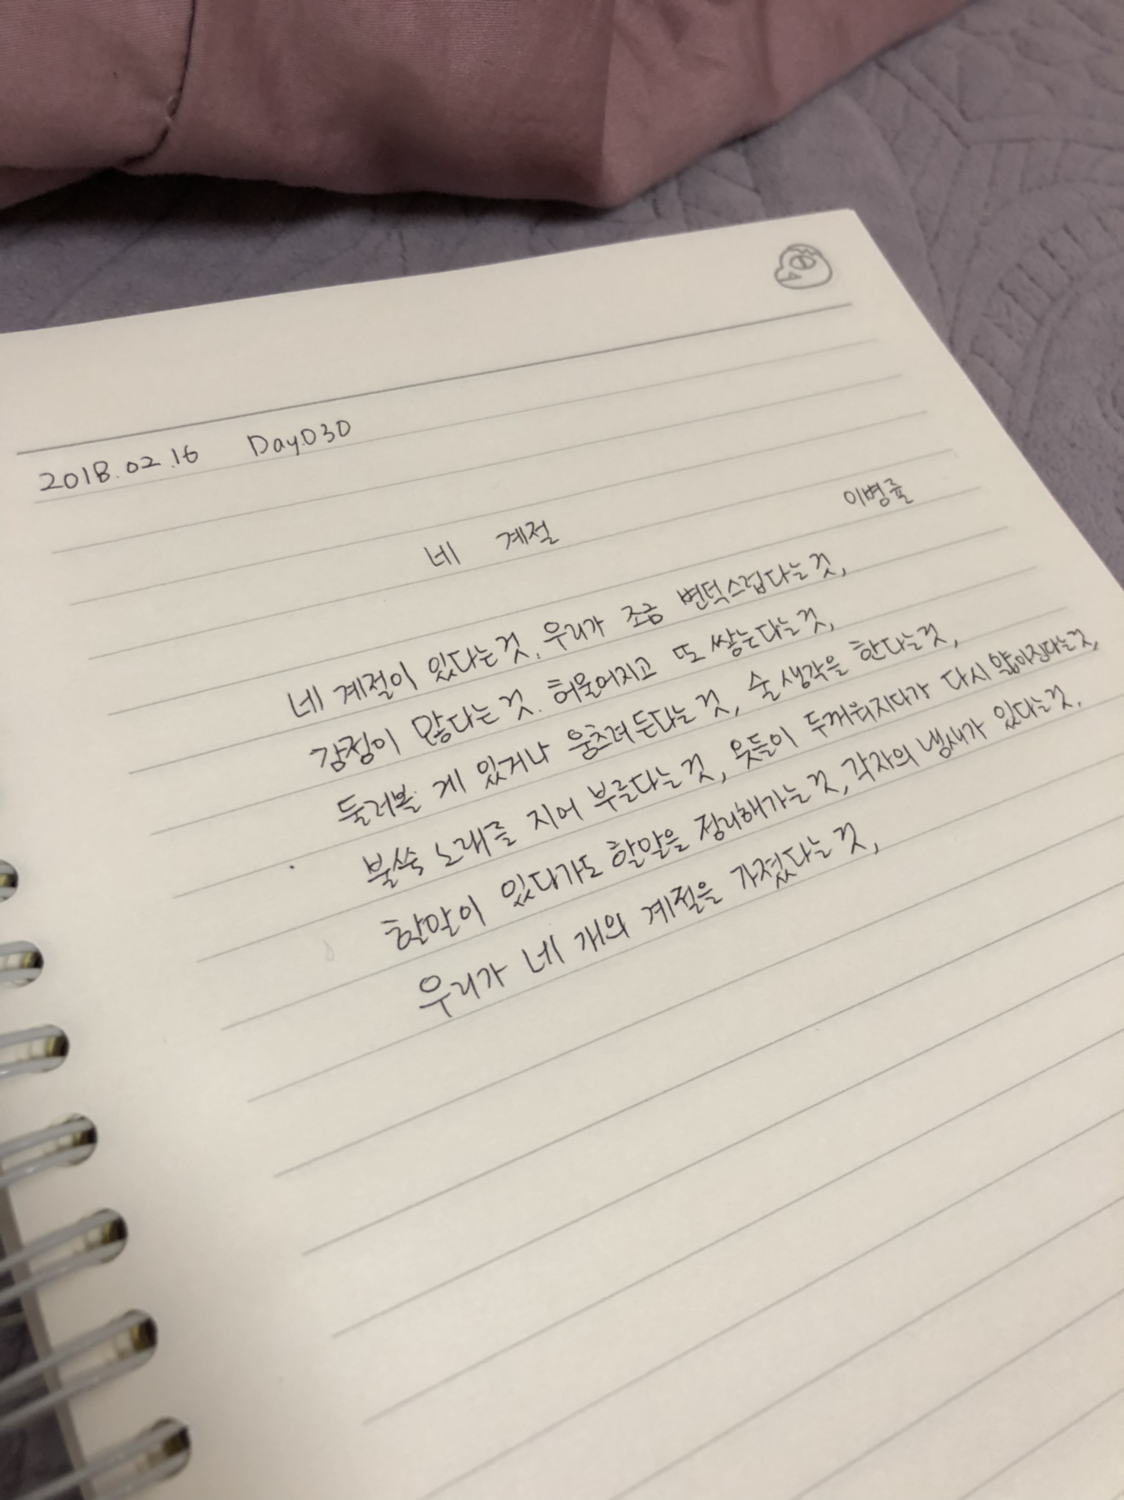 2018.02.16 Day030
이병률
네 계절
네 계절이 있다는것, 우리가 조금 변덕스럽다는것,
감정이 많다는것. 허물어지고 또 쌓는다는것,
둘러볼 게 있거나 움츠려든다는것, 술 생각을 한다는것,
불쑥 노래를 지어 부른다는것, 옷들이 두꺼워지다가 다시 얇아진다는것,
할말이 있다가도 할말을 정리해가는것, 각자의 냄새가 있다는것.
우리가 네 개의 계절을 가졌다는것,